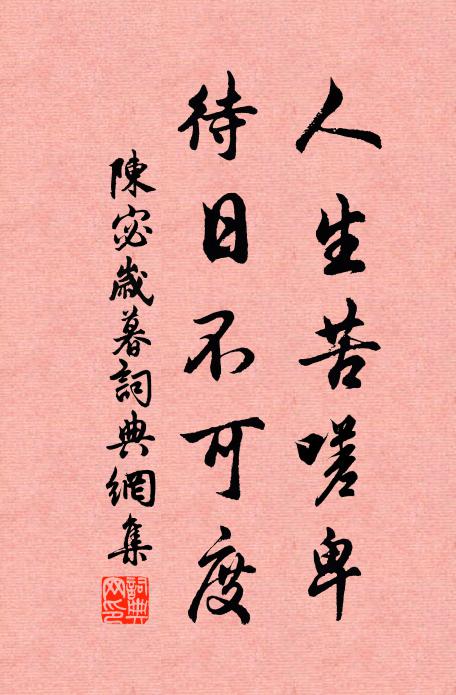 人生苦嗟卑
待日不可度
陳宓歲暮詞典網集
詞典网印